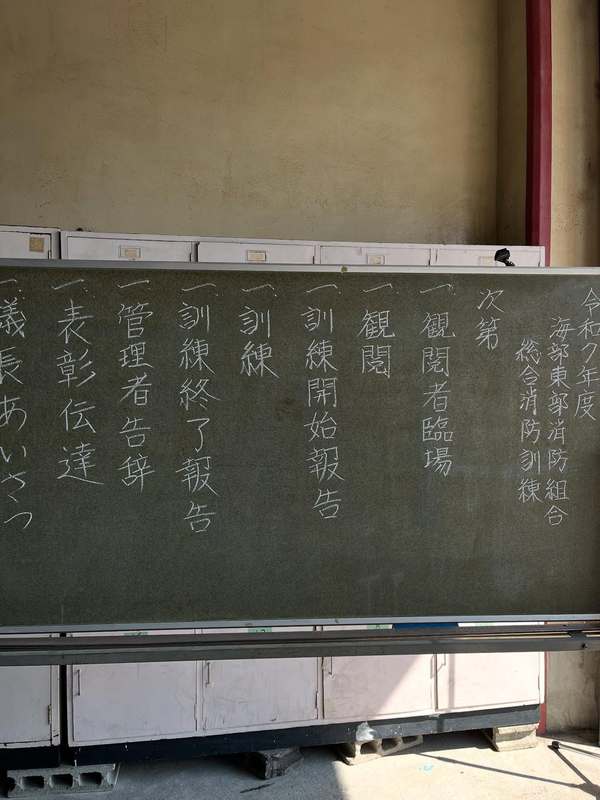 令和7年度
海部東部消防組合
総合消防訓練
次第
一、観閲者臨場
一、観閲
一、訓練開始報告
一、訓練
一、訓練終了報告
一、管理者告辞
一、表彰伝達
一、議長あいさつ